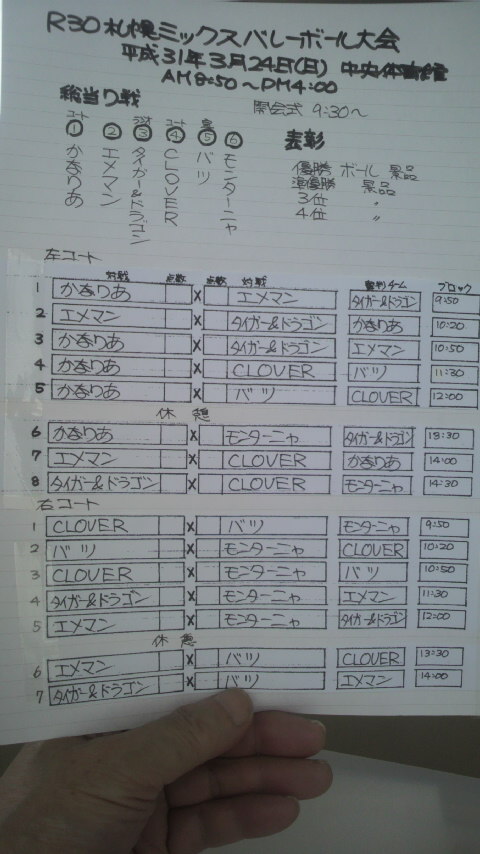 R30 札幌ミックスバレーボール大会
平成31年3月24日(日) 中央体育館
AM8:50~PM4:00
総当り戦
開会式 9:30~
コート ラジオ コート
① ② ③ ④ ⑤ ⑥
かなりあ
エメマン
タイガー&ドラゴン
CLOVER
バツ
モンターニャ
表彰
優勝 ボール 景品
準優勝 景品
3位 〃
4位 〃
左コート
対戦 点数 点数 対戦 審判チーム ブロック
1 かなりあ × エメマン タイガー&ドラゴン 9:50
2 エメマン × タイガー&ドラゴン かなりあ 10:20
3 かなりあ × タイガー&ドラゴン エメマン 10:50
4 かなりあ × CLOVER バツ 11:30
5 かなりあ × バツ CLOVER 12:00
休憩
6 かなりあ × モンターニャ タイガー&ドラゴン 13:30
7 エメマン × CLOVER かなりあ 14:00
8 タイガー&ドラゴン × CLOVER モンターニャ 14:30
右コート
1 CLOVER × バツ モンターニャ 9:50
2 バツ × モンターニャ CLOVER 10:20
3 CLOVER × モンターニャ バツ 10:50
4 タイガー&ドラゴン × モンターニャ エメマン 11:30
5 エメマン × モンターニャ タイガー&ドラゴン 12:00
休憩
6 エメマン × バツ CLOVER 13:30
7 タイガー&ドラゴン × バツ エメマン 14:00